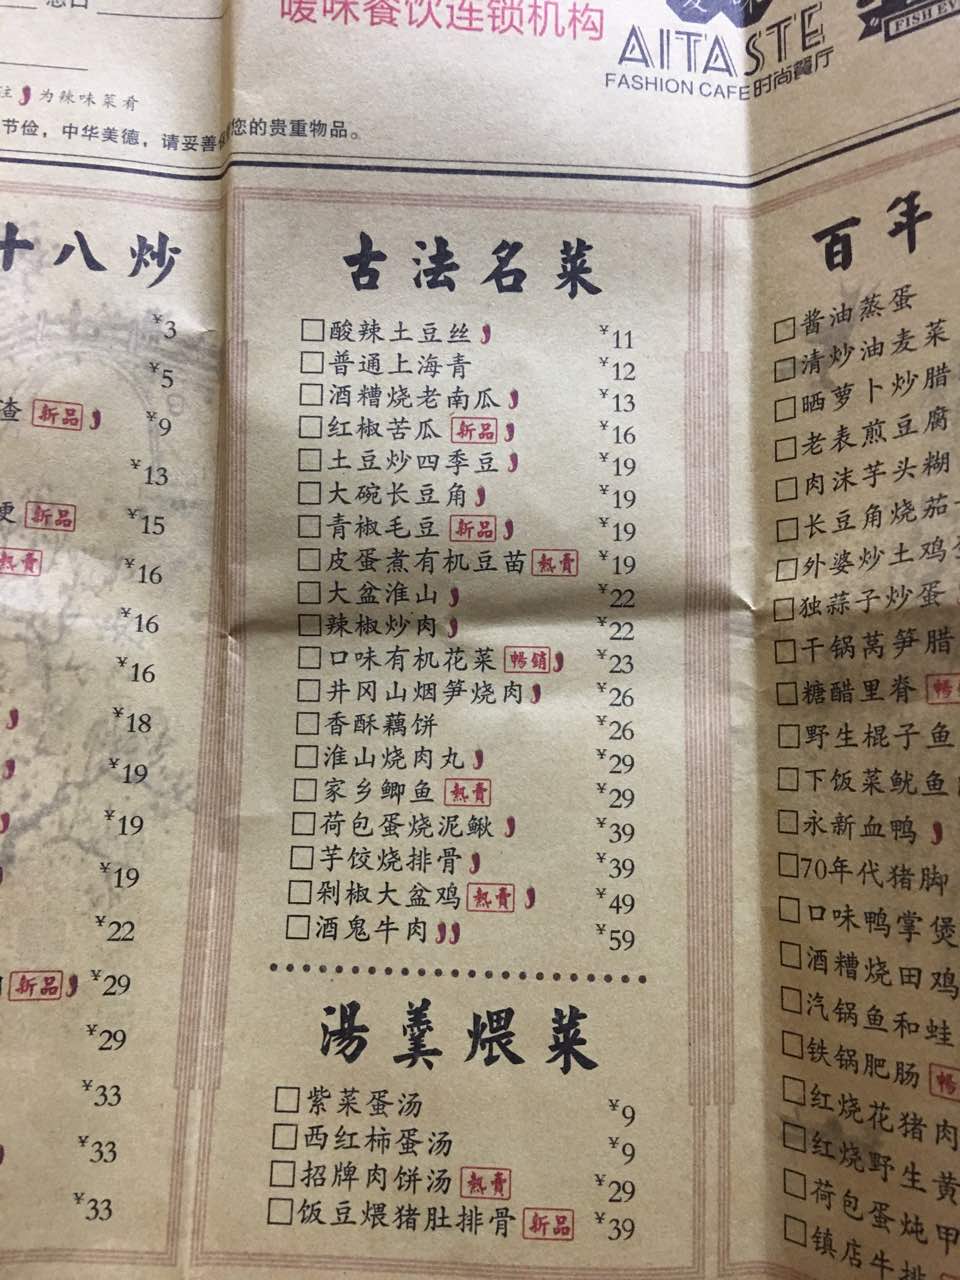 暖味餐饮连锁机构
AITASTE
FASHION CAFE 时尚餐厅
FISH EV
为辣味菜肴
节俭，中华美德，请妥善 您的贵重物品。
十八炒
¥3
¥5
渣 新品 ¥9
¥13
新品 ¥15
热卖 ¥16
¥16
¥16
¥18
¥19
¥19
¥19
¥22
新品 ¥29
¥29
¥33
¥33
¥33
古法名菜
酸辣土豆丝 ¥11
普通上海青 ¥12
酒糟烧老南瓜 ¥13
红椒苦瓜 新品 ¥16
土豆炒四季豆 ¥19
大碗长豆角 ¥19
青椒毛豆 新品 ¥19
皮蛋煮有机豆苗 熱賣 ¥19
大盆淮山 ¥22
辣椒炒肉 ¥22
口味有机花菜 暢銷 ¥23
井冈山烟笋烧肉 ¥26
香酥藕饼 ¥26
淮山烧肉丸 ¥29
家乡鲫鱼 熱賣 ¥29
荷包蛋烧泥鳅 ¥39
芋饺烧排骨 ¥39
剁椒大盆鸡 熱賣 ¥49
酒鬼牛肉 ¥59
湯羹煨菜
紫菜蛋汤 ¥9
西红柿蛋汤 ¥9
招牌肉饼汤 熱賣 ¥29
饭豆煨猪肚排骨 新品 ¥39
百年
酱油蒸蛋
清炒油麦菜
晒萝卜炒腊
老表煎豆腐
肉沫芋头糊
长豆角烧茄
外婆炒土鸡
独蒜子炒蛋
干锅莴笋腊
糖醋里脊
野生棍子鱼
下饭菜鱿鱼
永新血鸭
70年代猪脚
口味鸭掌煲
酒糟烧田鸡
汽锅鱼和蛙
铁锅肥肠
红烧花猪肉
红烧野生黄
荷包蛋炖甲
镇店牛排